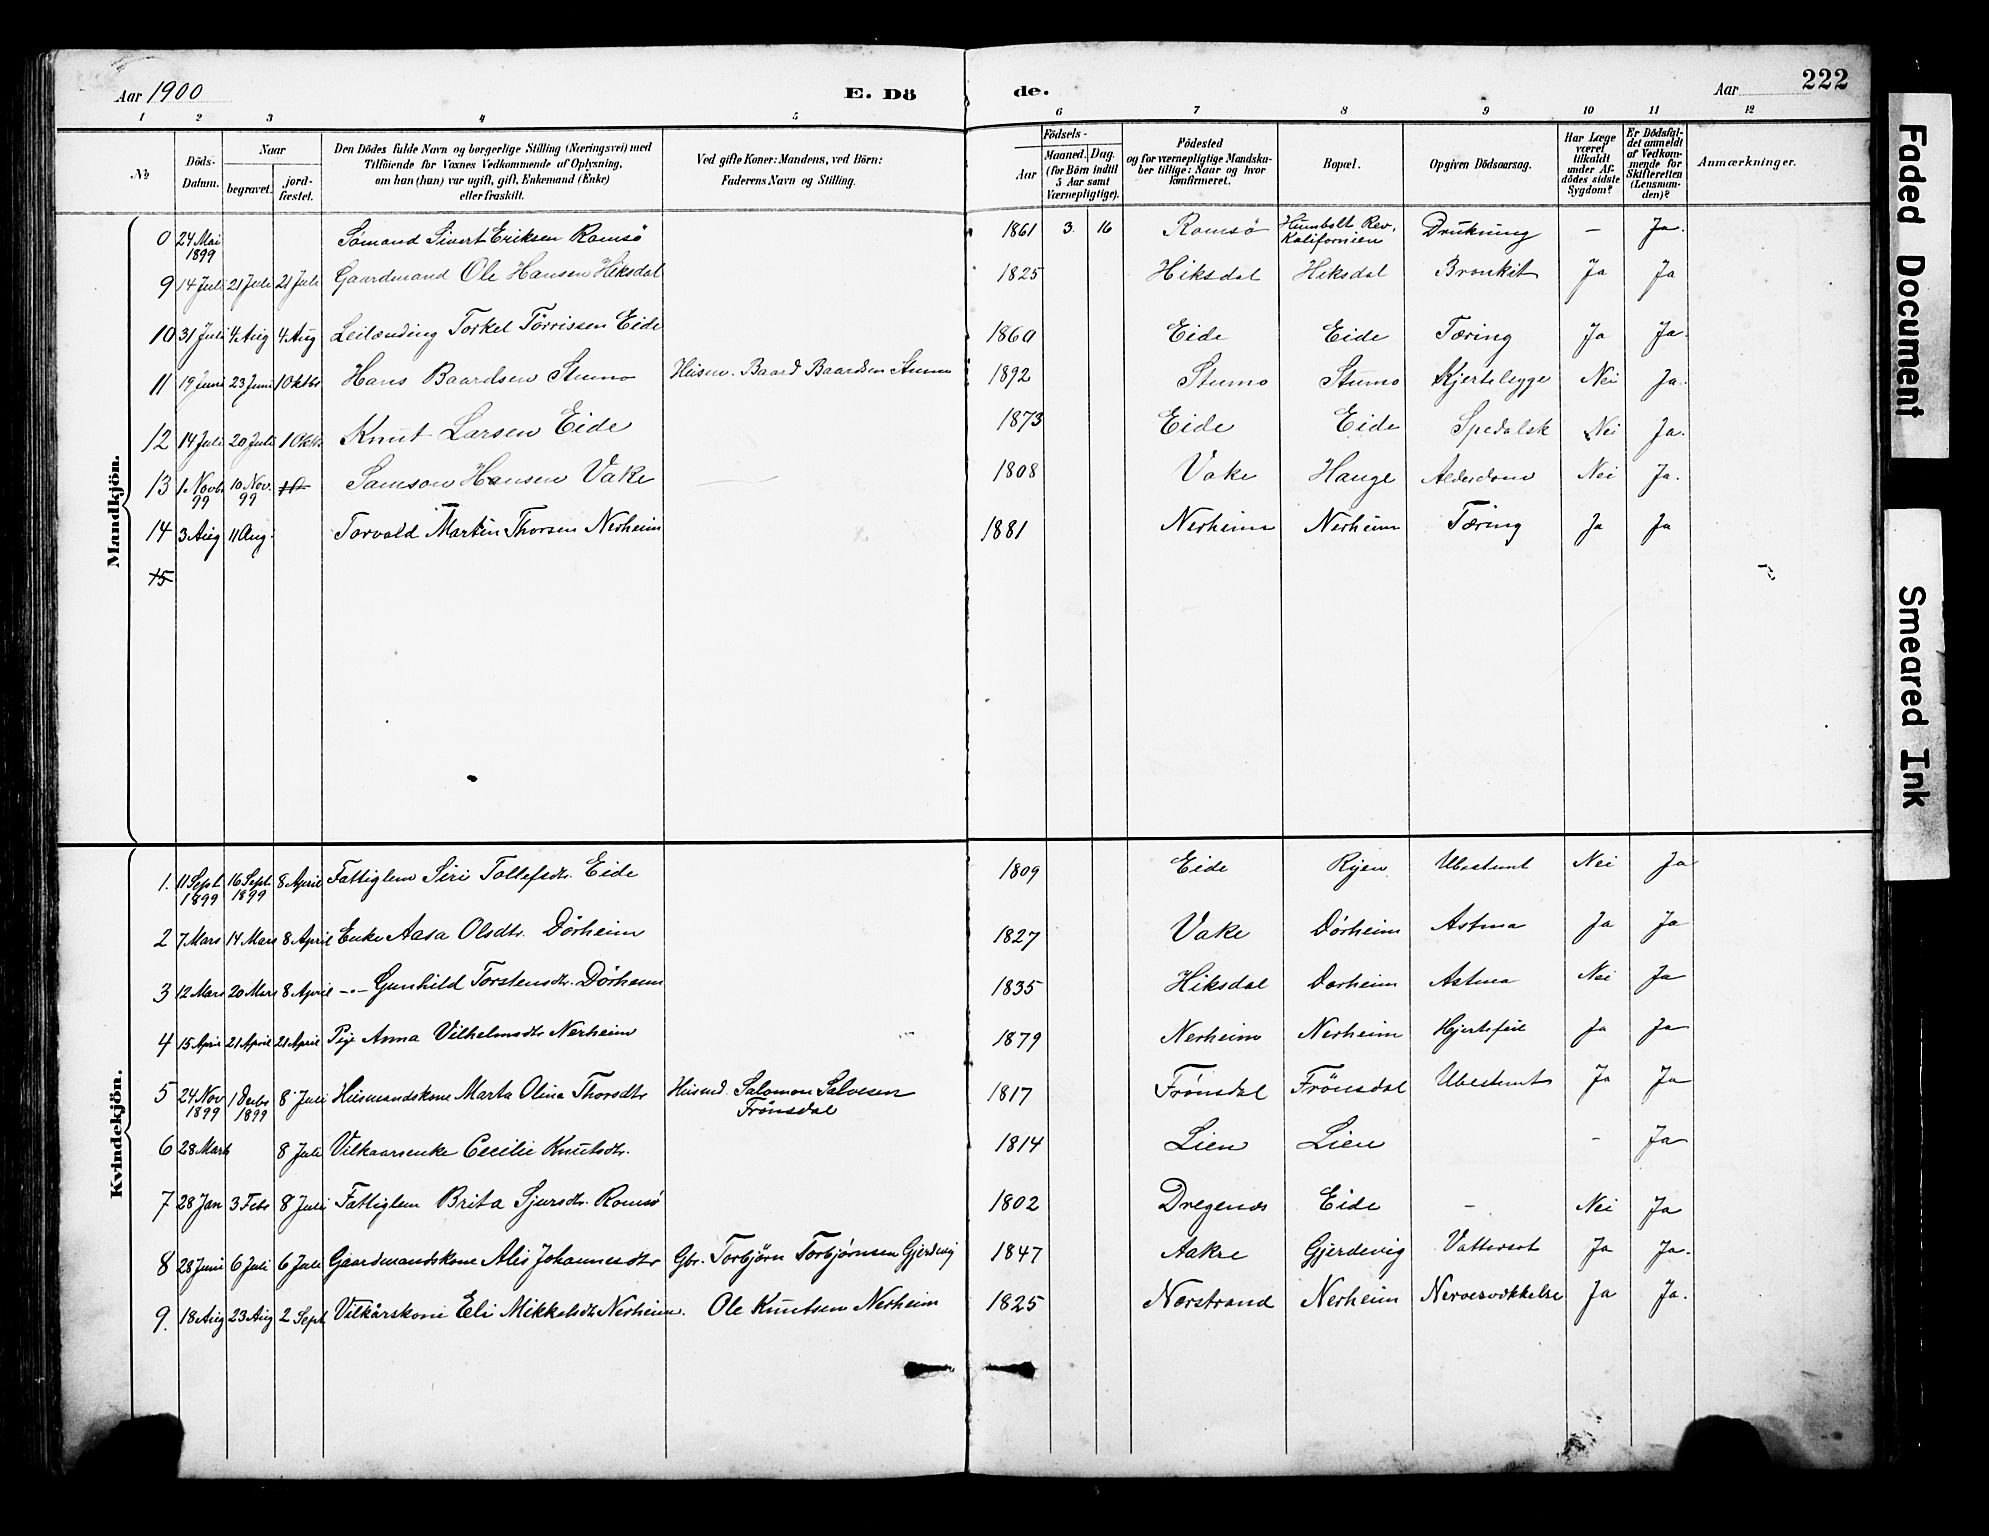 Aar 1900
E. Dö
de.
Aar
222
1 2 3 4 5 6 7 8 9 10 11 12
No
Döds-Datum.
Naar
begravet.
jord-fæstet.
Den Dödes fulde Navn og borgerlige Stilling (Næringsvei) med
Tilföiende for Voxnes Vedkommende af Oplysning,
om han (hun) var ugift, gift, Enkemand (Enke)
eller fraskilt.
Ved gifte Koner: Mandens, ved Börn:
Faderens Navn og Stilling.
Födsels-
Aar
Maaned. Dag.
(for Börn indtil
5 Aar samt
Værnepligtige).
Födested
og for værnepligtige Mandska-
ber tillige: Naar og hvor
konfirmeret.
Bopæl.
Opgiven Dödsaarsag.
Har Læge
været
tilkaldt
under Af-
dödes sidste
Sygdom?
Er Dödsfal-
det anmeldt
af Vedkom-
mende for
Skifteretten
(Lensman-
den)?
Anmærkninger.
Mandkjön.
0 24 Mai 1899 Sömand Sivert Eriksen Romsö 1861 3 16 Romsö Humbolt Rev. Kalifornien Drukning — Ja.
9 14 Juli 21 Juli 21 Juli Gaardmand Ole Hansen Hiksdal 1825 Hiksdal Hiksdal Bronkit Ja Ja
10 31 Juli 4 Aug 4 Aug Leilænding Torkel Törrissen Eide 1860 Eide Eide Tæring Ja Ja.
11 19 Juni 23 Juni 1 Oktbr Hans Baardsen Stumo Husm. Baard Baardsen Stumo 1892 Stumo Stumo Kjertelsyge Nei Ja.
12 14 Juli 20 Juli 1 Oktbr. Knut Larsen Eide 1873 Eide Eide Spedalsk Nei Ja.
13 1 Novb. 99 10 Nov. 99 Samson Hansen Vake — 1808 Vake Hauge Alderdom Nei Ja.
14 3 Aug 11 Aug. Torvald Martin Thorsen Nerheim 1881 Nerheim Nerheim Tæring Ja Ja
15
Kvindekjön.
1. 11 Sept 1899 16 Sept. 1899 8 April Fattiglem Siri Tollefsdtr. Eide 1809 Eide Ryen Ubestemt Nei Ja
2 7 Mars 14 Mars 8 April Enke Aasa Olsdtr. Dörheim 1827 Vake Dörheim Astma Ja Ja
3 12 Mars 20 Mars 8 April -"- Gunhild Torstensdtr. Dörheim 1835 Hiksdal Dörheim Astma Nei Ja
4 15 April 21 April 21 April Pige Anna Vilhelmsdtr Nerheim 1879 Nerheim Nerheim Hjertefeil Ja Ja
5 24 Nov 1899 1 Decbr 1899 8 Juli Husmandskone Marta Olina Thorsdtr Husmd. Salomon Salvesen Frönsdal 1817 Frönsdal Frönsdal Ubestemt Ja Ja
6 28 Marts 8 Juli Vilkaarsenke Cecilie Knutsdtr. 1814 Lien Lien - Ja
7 28 Jan 3 Febr 8 Juli Fattiglem Brita Sjursdtr. Romsö 1802 Dregenes Eide - Nei Ja
8 28 Juni 6 Juli 6 Juli Gaardmandskone Alis Johannesdtr Gbr. Torbjörn Torbjörnsen Gjerdevig 1847 Aakre Gjerdevig Vattersot Ja Ja.
9. 18 Aug 23 Aug 2 Sept Vilkårskone Eli Mikkelsdtr Nerheim. Ole Knutsen Nerheim 1825 Norstrand Nerheim Nervesvækkelse Ja Ja.
Faded Document
Smeared Ink